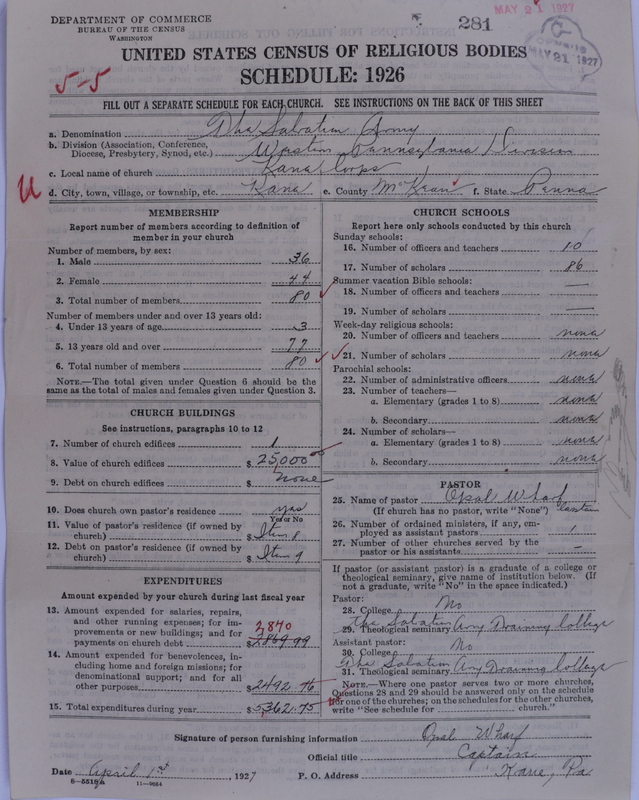 DEPARTMENT OF COMMERCE
BUREAU OF THE CENSUS
WASHINGTON
281
MAY 21 1927
MAY 21 1927
UNITED STATES CENSUS OF RELIGIOUS BODIES
SCHEDULE: 1926
5-5
FILL OUT A SEPARATE SCHEDULE FOR EACH CHURCH. SEE INSTRUCTIONS ON THE BACK OF THIS SHEET
a. Denomination The Salvation Army
b. Division (Association, Conference, Diocese, Presbytery, Synod, etc.) Western Pennsylvania Division
c. Local name of church Kane Corps
u
d. City, town, village, or township, etc. Kane e. County McKean f. State Penna
MEMBERSHIP
Report number of members according to definition of
member in your church
Number of members, by sex:
1. Male 36
2. Female 44
3. Total number of members 80
Number of members under and over 13 years old:
4. Under 13 years of age 3
5. 13 years old and over 77
6. Total number of members 80
NOTE.—The total given under Question 6 should be
same as the total of males and females given under Question 3.
CHURCH BUILDINGS
See instructions, paragraphs 10 to 12
7. Number of church edifices 1
8. Value of church edifices $ 25,000.00
9. Debt on church edifices $ none
10. Does church own pastor's residence yes
Yes or No
11. Value of pastor's residence (if owned by
church) $ Item 8
12. Debt on pastor's residence (if owned by
church) $ Item 9
EXPENDITURES
Amount expended by your church during last fiscal year
13. Amount expended for salaries, repairs,
and other running expenses; for im-
provements or new buildings; and for
payments on church debt $ 2869.99
14. Amount expended for benevolences,
including home and foreign missions; for
denominational support; and for all
other purposes $ 2492.76
15. Total expenditures during year $ 5362.75
CHURCH SCHOOLS
Report here only schools conducted by this church
Sunday schools:
16. Number of officers and teachers 10
17. Number of scholars 86
Summer vacation Bible schools:
18. Number of officers and teachers —
19. Number of scholars —
Week-day religious schools:
20. Number of officers and teachers none
21. Number of scholars none
Parochial schools:
22. Number of administrative officers none
23. Number of teachers—
a. Elementary (grades 1 to 8) none
b. Secondary none
24. Number of scholars—
a. Elementary (grades 1 to 8) none
b. Secondary none
PASTOR
25. Name of pastor Opal Wharf
(If church has no pastor, write "None")
26. Number of ordained ministers, if any, em-
ployed as assistant pastors 1
27. Number of other churches served by the
pastor or his assistants —
If pastor (or assistant pastor) is a graduate of a college or
theological seminary, give name of institution below. (If
not a graduate, write "No" in the space indicated.)
Pastor:
28. College No
29. Theological seminary The Salvation Army Training College
Assistant pastor:
30. College No
31. Theological seminary The Salvation Army Training College
NOTE.—Where one pastor serves two or more churches,
Questions 28 and 29 should be answered only on the schedule
for one of the churches; on the schedules for the other churches,
write "See schedule for church."
Signature of person furnishing information Opal Wharf
Official title Captain
Date April 1st, 1927 P. O. Address Kane, Pa
11—9664